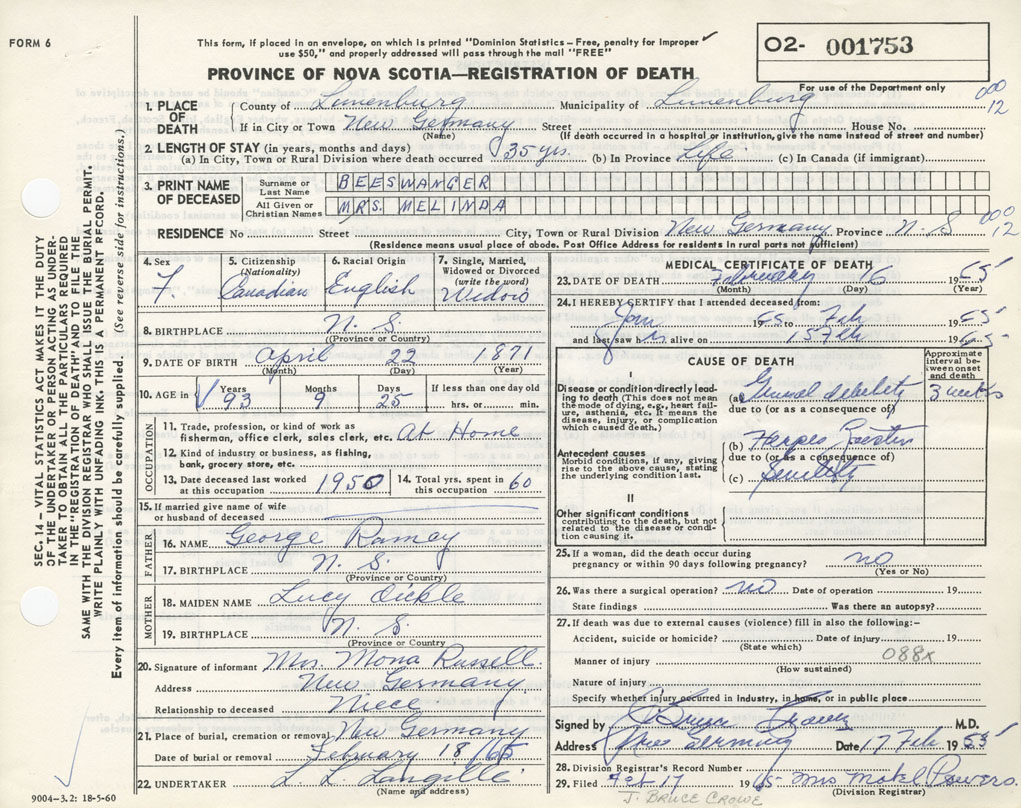 FORM 6
This form, if placed in an envelope, on which is printed "Dominion Statistics – Free, penalty for improper
use $50," and properly addressed will pass through the mail "FREE"
O2- 001753
For use of the Department only
PROVINCE OF NOVA SCOTIA—REGISTRATION OF DEATH
000
12
1. PLACE OF DEATH
County of Lunenburg Municipality of Lunenburg
If in City or Town New Germany Street House No.
(Name) (If death occurred in a hospital or institution, give the name instead of street and number)
2. LENGTH OF STAY (in years, months and days)
(a) In City, Town or Rural Division where death occurred 35 yrs. (b) In Province Life (c) In Canada (if immigrant)
3. PRINT NAME OF DECEASED
Surname or Last Name BEESWANGER
All Given or Christian Names MRS. MELINDA
RESIDENCE No Street City, Town or Rural Division New Germany Province N. S
000
12
(Residence means usual place of abode. Post Office Address for residents in rural parts not sufficient)
4. Sex
F.
5. Citizenship (Nationality)
Canadian
6. Racial Origin
English
7. Single, Married, Widowed or Divorced (write the word)
Widow
8. BIRTHPLACE N. S.
(Province or Country)
9. DATE OF BIRTH April 22 1871
(Month) (Day) (Year)
10. AGE in Years 93 Months 9 Days 25 If less than one day old hrs. or min.
OCCUPATION
11. Trade, profession, or kind of work as
fisherman, office clerk, sales clerk, etc. At Home
12. Kind of industry or business, as fishing,
bank, grocery store, etc.
13. Date deceased last worked at this occupation 1950
14. Total yrs. spent in this occupation 60
15. If married give name of wife
or husband of deceased
FATHER
16. NAME George Ramay
17. BIRTHPLACE N. S.
(Province or Country)
MOTHER
18. MAIDEN NAME Lucy Oickle
19. BIRTHPLACE N. S.
(Province or Country)
20. Signature of informant Mrs. Mona Russell.
Address New Germany
Relationship to deceased Niece
21. Place of burial, cremation or removal New Germany
Date of burial or removal February 18/65
22. UNDERTAKER L. L. Langille
(Name and address)
MEDICAL CERTIFICATE OF DEATH
23. DATE OF DEATH February 16 1965
(Month) (Day) (Year)
24. I HEREBY CERTIFY that I attended deceased from:
Jan 1965 to Feb 1965
and last saw h alive on 15 Feb 1965
CAUSE OF DEATH
Approximate interval between onset and death
I
Disease or condition directly leading to death (This does not mean the mode of dying, e.g., heart failure, asthenia, etc. It means the disease, injury, or complication which caused death.)
(a) General debility 3 weeks
due to (or as a consequence of)
Antecedent causes
Morbid conditions, if any, giving rise to the above cause, stating the underlying condition last.
(b) Herpes Zoster
due to (or as a consequence of)
(c) Senility
II
Other significant conditions
contributing to the death, but not related to the disease or condition causing it.
25. If a woman, did the death occur during
pregnancy or within 90 days following pregnancy? no
(Yes or No)
26. Was there a surgical operation? no Date of operation 19
State findings Was there an autopsy?
27. If death was due to external causes (violence) fill in also the following:-
Accident, suicide or homicide? Date of injury 19
(State which)
088x
Manner of injury
(How sustained)
Nature of injury
Specify whether injury occurred in industry, in home, or in public place
Signed by M.D.
Address Date 17 Feb 19
28. Division Registrar's Record Number
29. Filed Feb 17 1965 Mrs
(Division Registrar)
J. BRUCE CROWE
SEC. 14 – VITAL STATISTICS ACT MAKES IT THE DUTY
OF THE UNDERTAKER OR PERSON ACTING AS UNDER-
TAKER TO OBTAIN ALL THE PARTICULARS REQUIRED
IN THE "REGISTRATION OF DEATH" AND TO FILE THE
SAME WITH THE DIVISION REGISTRAR WHO SHALL ISSUE THE BURIAL PERMIT.
WRITE PLAINLY WITH UNFADING INK. THIS IS A PERMANENT RECORD.
Every item of information should be carefully supplied. (See reverse side for instructions.)
9004–3.2: 18-5-60